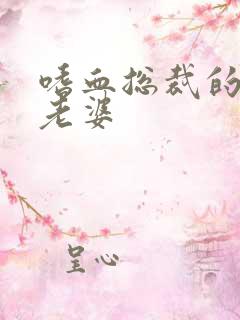 嗜血总裁的
老婆
呈心